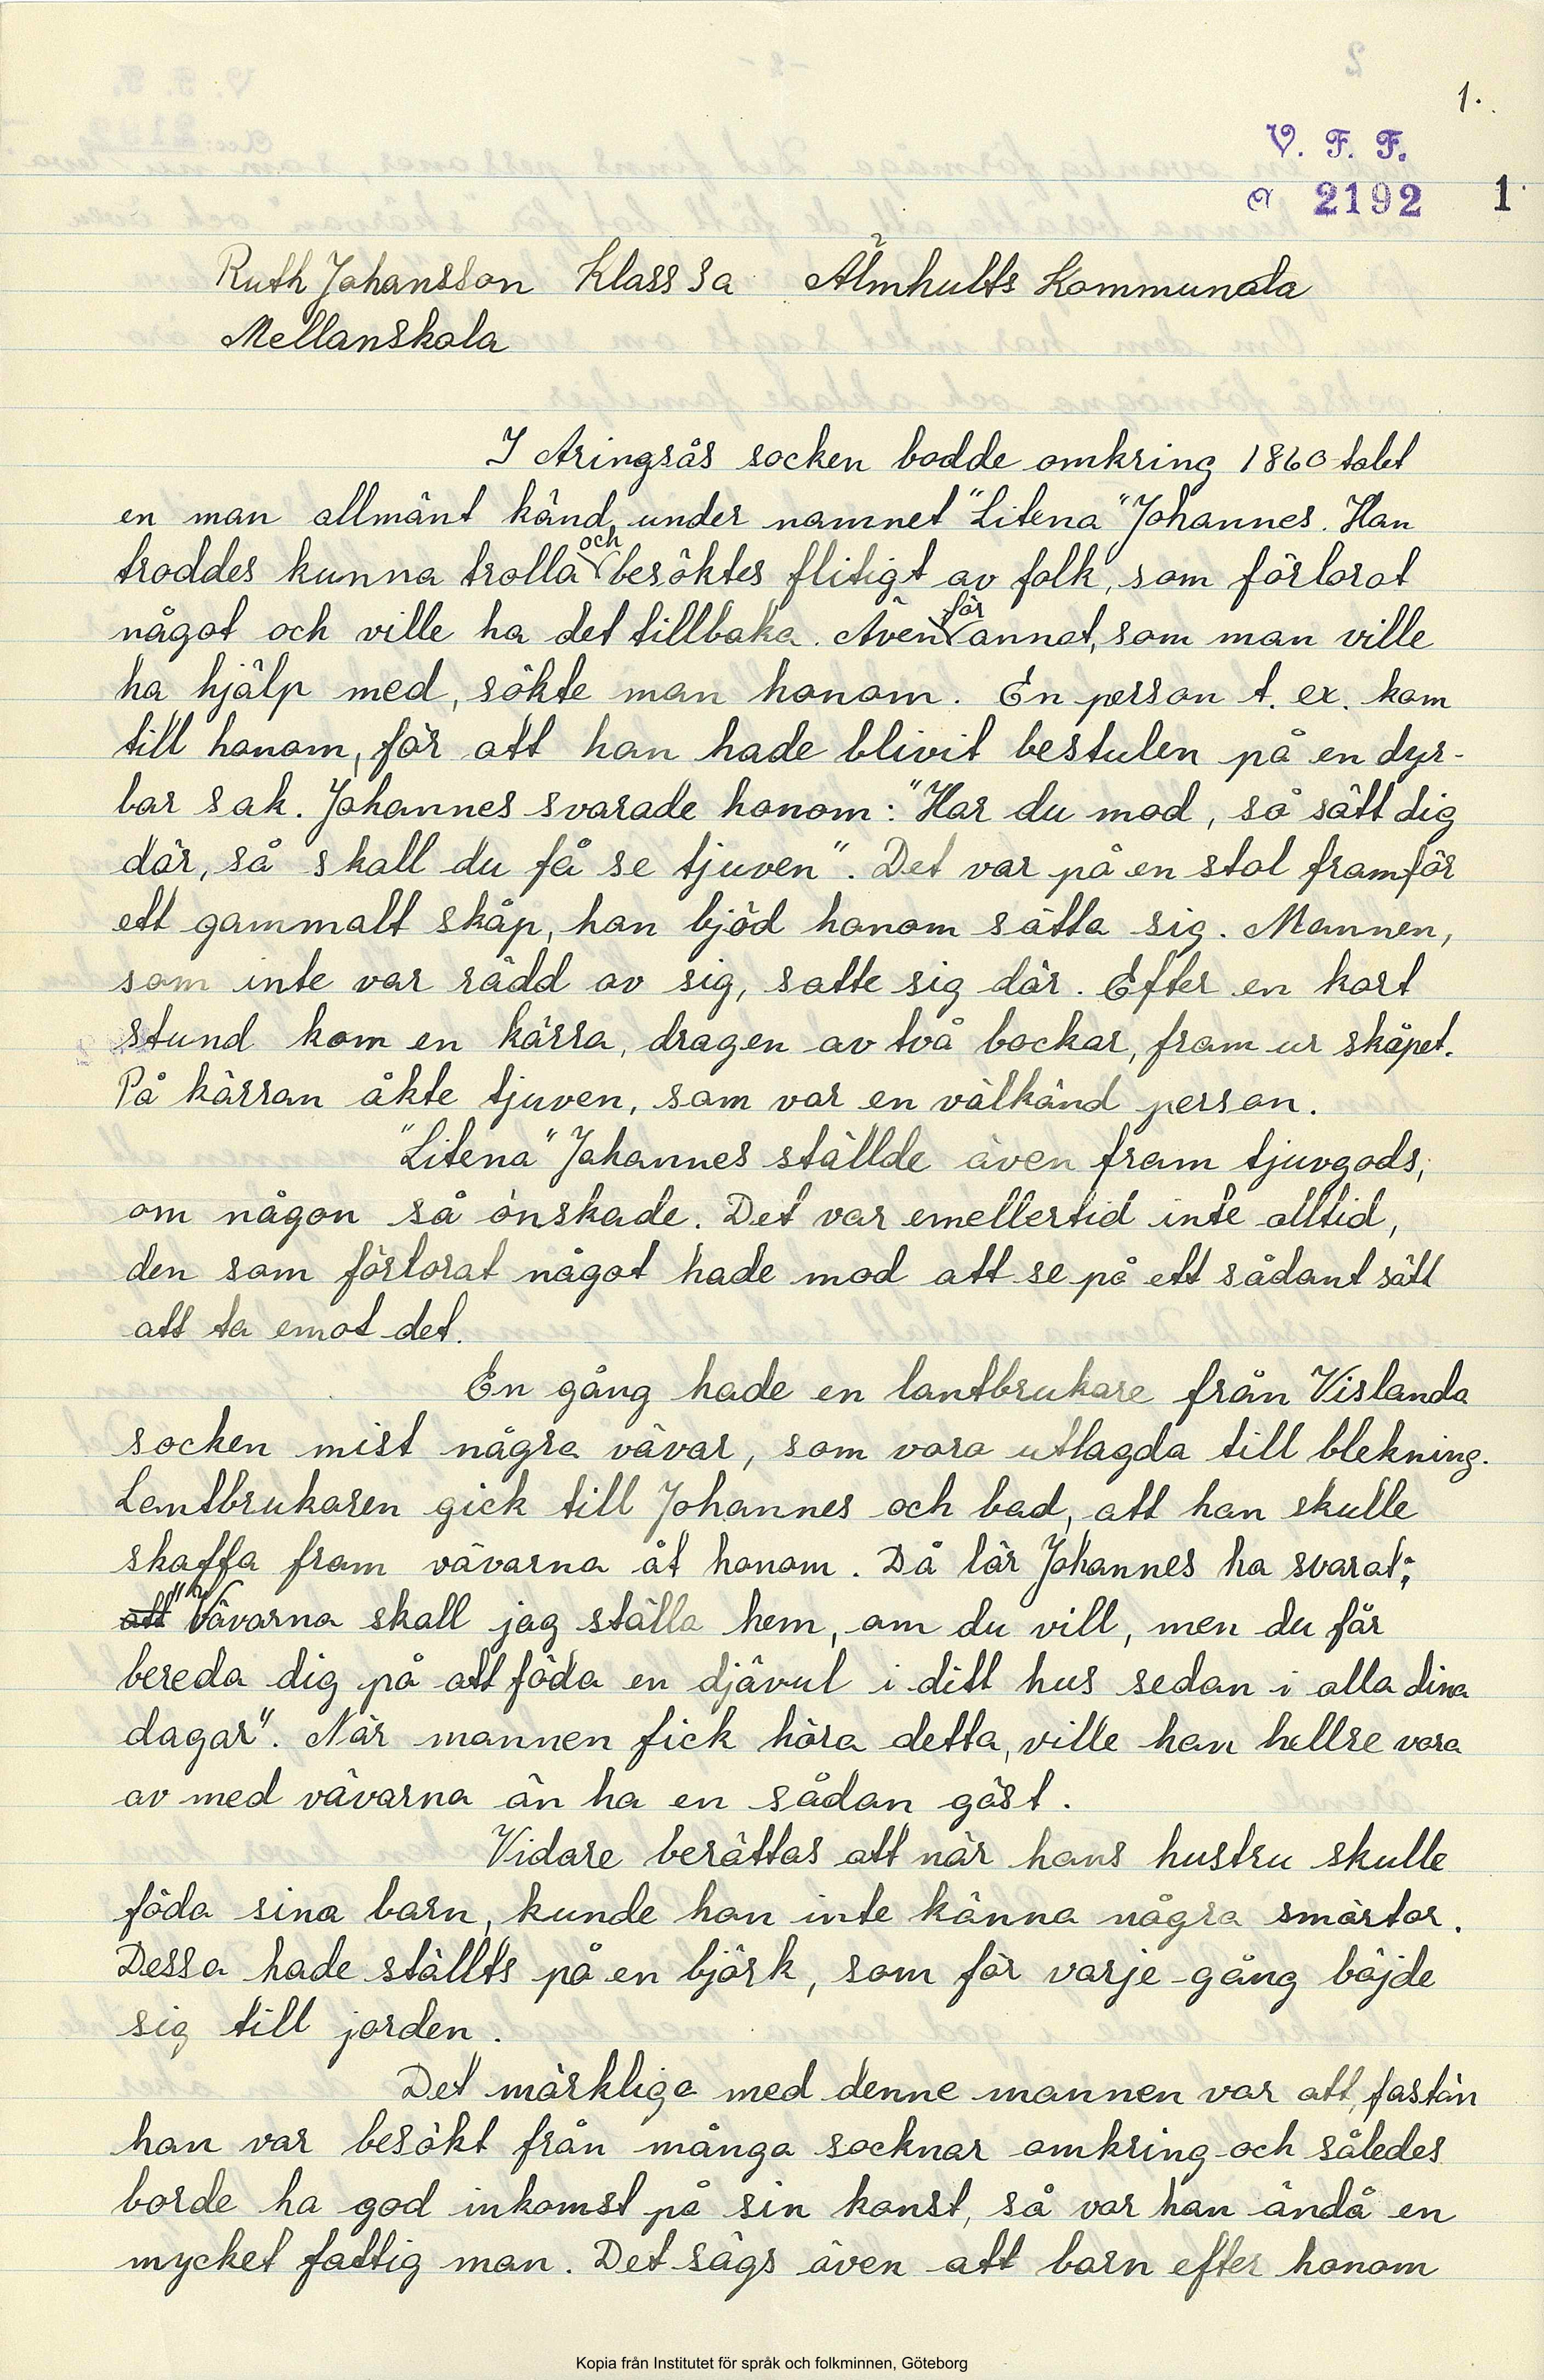 1.
V. F. F.
a 2192 1
Ruth Johansson Klass 3a Älmhults Kommunala
Mellanskola
I Aringsås socken bodde omkring 1860-talet
en man allmänt känd under namnet "Litena" Johannes. Han
troddes kunna trolla och besöktes flitigt av folk, som förlorat
något och ville ha det tillbaka. Även för annat, som man ville
ha hjälp med, sökte man honom. En person t. ex. kom
till honom, för att han hade blivit bestulen på en dyr-
bar sak. Johannes svarade honom: "Har du mod, så sätt dig
där, så skall du få se tjuven". Det var på en stol framför
ett gammalt skåp, han bjöd honom sätta sig. Mannen,
som inte var rädd av sig, satte sig där. Efter en kort
stund kom en kärra, dragen av två bockar, fram ur skåpet.
På kärran åkte tjuven, som var en välkänd person.
"Litena" Johannes ställde även fram tjuvgods,
om någon så önskade. Det var emellertid inte alltid,
den som förlorat något hade mod att se på ett sådant sätt
att ta emot det.
En gång hade en lantbrukare från Vislanda
socken mist några vävar, som voro utlagda till blekning.
Lantbrukaren gick till Johannes och bad, att han skulle
skaffa fram vävarna åt honom. Då lär Johannes ha svarat:
att "Vävarna skall jag ställa hem, om du vill, men du får
bereda dig på att föda en djävul i ditt hus sedan i alla dina
dagar". När mannen fick höra detta, ville han hellre vara
av med vävarna än ha en sådan gäst.
Vidare berättas att när hans hustru skulle
föda sina barn, kunde hon inte känna några smärtor.
Dessa hade ställts på en björk, som för varje gång böjde
sig till jorden.
Det märkliga med denne mannen var att, fastän
han var besökt från många socknar omkring och således
borde ha god inkomst på sin konst, så var han ändå en
mycket fattig man. Det sägs även att barn efter honom
Kopia från Institutet för språk och folkminnen, Göteborg